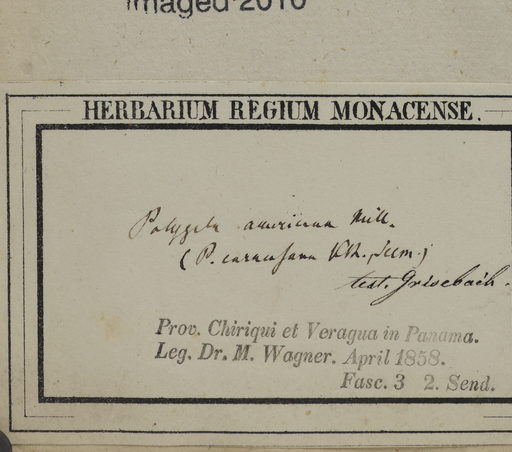 Imaged 2010
HERBARIUM REGIUM MONACENSE.
Polygala americana Mill.
(P. caracasana Kth. Seem.)
test. Grisebach.
Prov. Chiriqui et Veragua in Panama.
Leg. Dr. M. Wagner. April 1858.
Fasc. 3 2. Send.